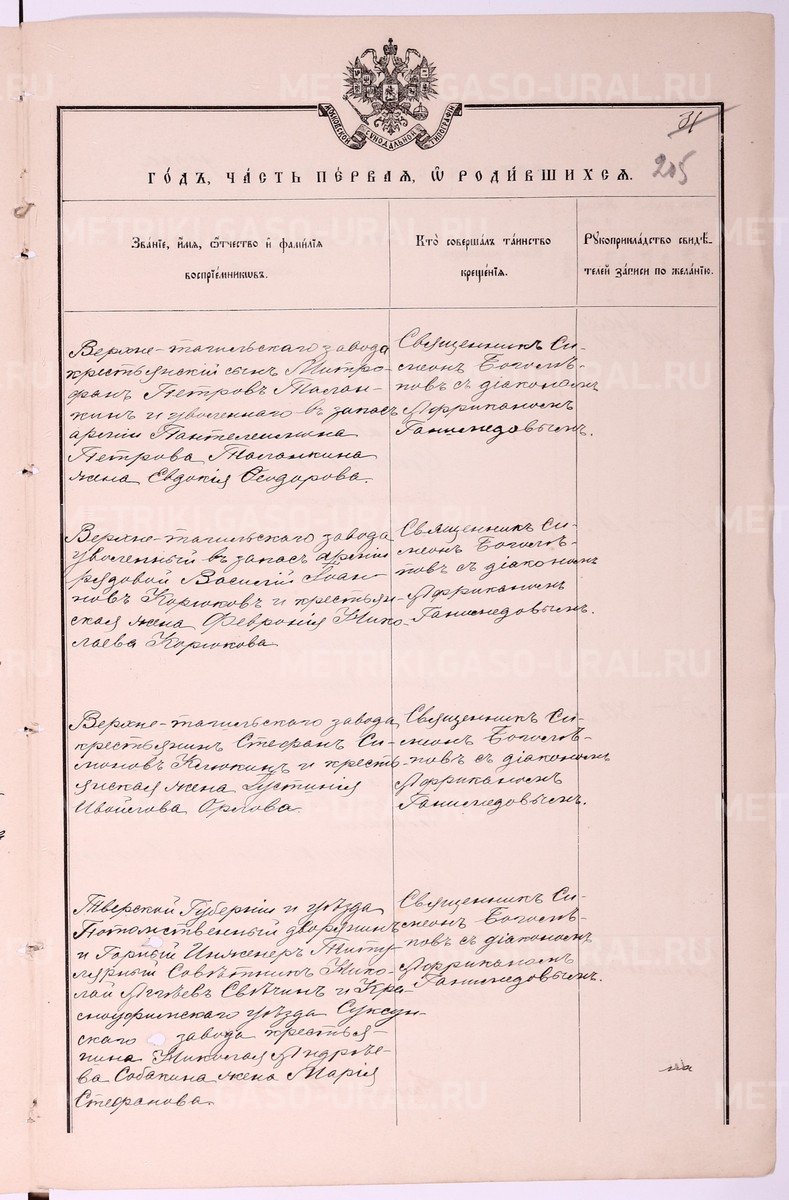 МОСКОВСКОЙ СѴНОДАЛЬНОЙ ТИПОГРАФІИ
31
205
ГОДЪ, ЧАСТЬ ПЕРВАЯ, Ѽ РОДИВШИХСЯ.
Званіе, имя, отчество и фамилія
воспріемниковъ.
Кто совершалъ таинство
крещенія.
Рукоприкладство свидѣ-
телей записи по желанію.
Верхне-тагильскаго завода
крестьянскій сынъ Митро-
фанъ Петровъ Талан-
кинъ и уволеннаго въ запасъ
арміи Пантелеимона
Петрова Таланкина
жена Евдокія Ѳеодорова.
Священникъ Си-
меон Боголѣ-
повъ съ діакономъ
Африканомъ
Ганимедовымъ.
Верхне-тагильскаго завода
уволенный въ запасъ арміи
рядовой Василій Іоан-
новъ Корюковъ и крестьян-
ская жена Феврония Нико-
лаева Корюкова
Священникъ Си-
меонъ Боголѣ-
повъ съ діакономъ
Африканомъ
Ганимедовымъ.
Верхне-тагильскаго завода
крестьянинъ Стефанъ Си-
моновъ Клюкинъ и кресть-
янская жена Іустинія
Орлова.
Священникъ Си-
меонъ Боголѣ-
повъ съ діакономъ
Африканомъ
Ганимедовымъ.
Тверской Губерніи и уѣзда
Потомственный дворянинъ
и Горный Инженеръ Титу-
лярный Совѣтникъ Нико-
лай Аггѣевъ Свѣчин и Кра-
сноуфимскаго уѣзда Суксун-
скаго завода крестья-
нина Николая Андрѣе-
ва Собакина жена Марія
Стефанова.
Священникъ Си-
меонъ Боголѣ-
повъ съ діакономъ
Африканомъ
Ганимедовымъ.
METRIKI.GASO-URAL.RU